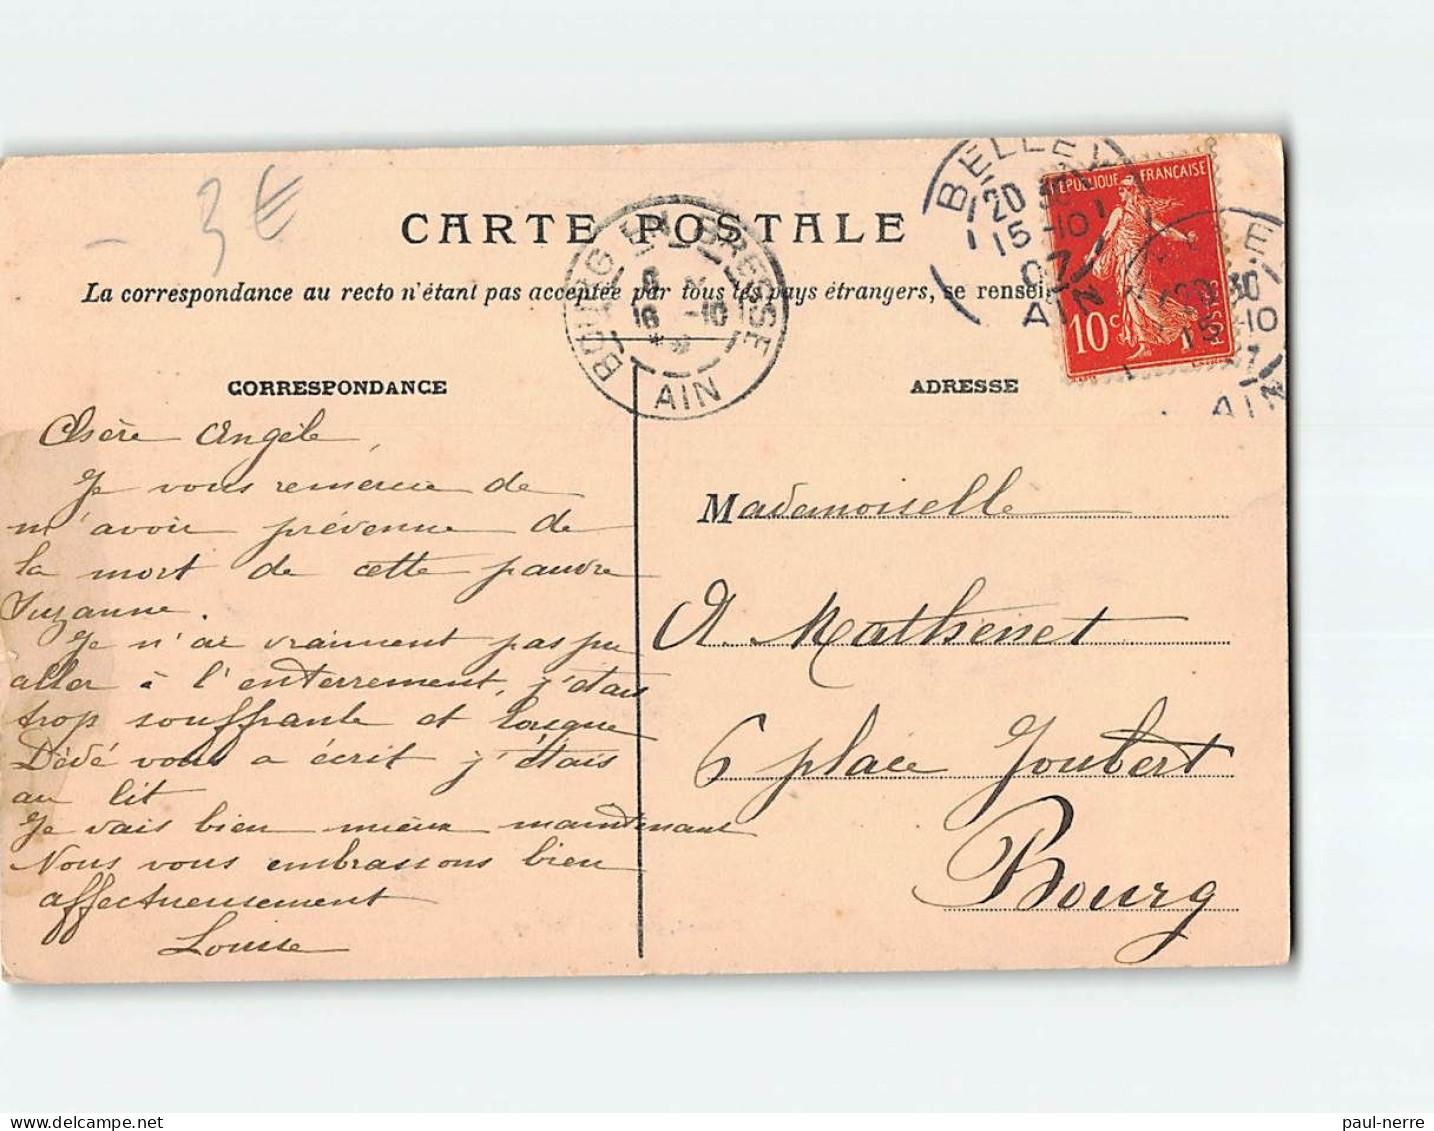 - 3€
CARTE POSTALE
La correspondance au recto n'étant pas acceptée par tous les pays étrangers, se renseig
BOURG EN BRESSE
16 -10
AIN
BELLEY
20 30
15 -10
07
AIN
RÉPUBLIQUE FRANÇAISE
10c
E
20 30
15 -10
7
AIN
CORRESPONDANCE
Chère Angèle,
Je vous remercie de
m'avoir prévenue de
la mort de cette pauvre
Suzanne.
Je n'ai vraiment pas pu
aller à l'enterrement, j'étais
trop souffrante et lorsque
Dédé vous a écrit j'étais
au lit
Je vais bien mieux maintenant
Nous vous embrassons bien
affectueusement
Louise
ADRESSE
Mademoiselle
A. Mathenet
6 place Joubert
Bourg
paul-nerre